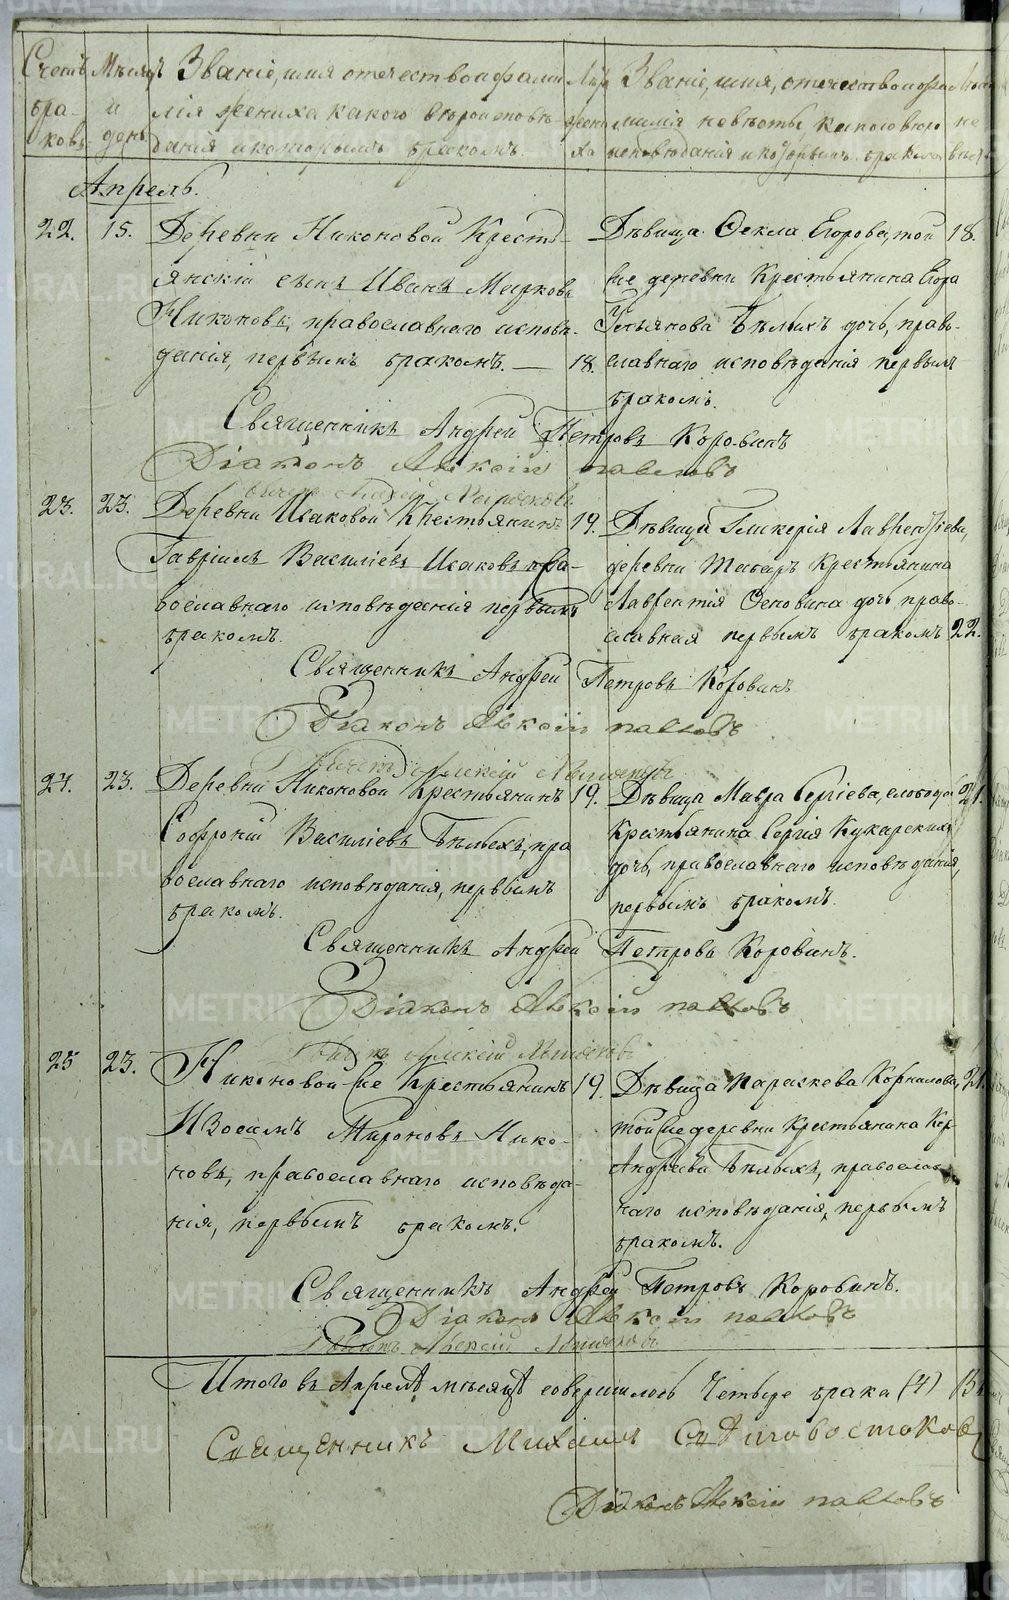 Счетъ бра- ковъ
Мѣсяцъ и день
Званіе, имя отечество и фами-
лія жениха какого вѣроисповѣ-
данія и которымъ бракомъ.
Лѣта жени- ха
Званіе, имя, отечество и фа-
милія невѣсты, какого вѣро
исповѣданія и которымъ бракомъ
Апрель.
22. 15. Деревни Никоновой Кресть-
янскій сынъ Иванъ Марковъ
Никоновъ, православнаго исповѣ-
данія первымъ бракомъ. — 18.
Дѣвица Фекла Егорова, той 18.
же деревни Крестьянина Егора
Бѣлыхъ дочь, право-
славнаго исповѣданія первымъ
бракомъ.
Священникъ Андрей Петровъ Коровинъ
Діаконъ Алексій Павловъ
23. 23. Деревни Исаковой Крестьянинъ 19.
Гавріилъ Василіевъ Исаковъ пра-
вославнаго исповѣданія первымъ
бракомъ.
Дѣвица Гликерія Лаврентіева,
деревни Крестьянина
Лаврентія Осковина дочь право-
славная первымъ бракомъ 22.
Священникъ Андрей Петровъ Коровинъ
Діаконъ Алексій Павловъ
24. 23. Деревни Никоновой Крестьянинъ 19.
Софроній Василіевъ Бѣлыхъ, пра
вославнаго исповѣданія, первымъ
бракомъ.
Дѣвица Мавра Сергіева, слободы 21.
Крестьянина Сергія Кукарскихъ
дочь, православнаго исповѣданія,
первымъ бракомъ.
Священникъ Андрей Петровъ Коровинъ.
Діаконъ Алексій Павловъ
25 23. Никоновой же Крестьянинъ 19.
Мироновъ Нико-
новъ, православнаго исповѣда-
нія, первымъ бракомъ.
Дѣвица Параскева Корнилова, 21.
той же деревни Крестьянина
Андреева Бѣлыхъ, православ-
наго исповѣданія, первымъ
бракомъ.
Священникъ Андрей Петровъ Коровинъ.
Діаконъ Алексій Павловъ
Итого въ Апрелѣ мѣсяцѣ совершилось Четыре брака (4)
Священникъ Михаилъ Свѣтловостоковъ
Діаконъ Алексій Павловъ
METRIKI.GASO-URAL.RU